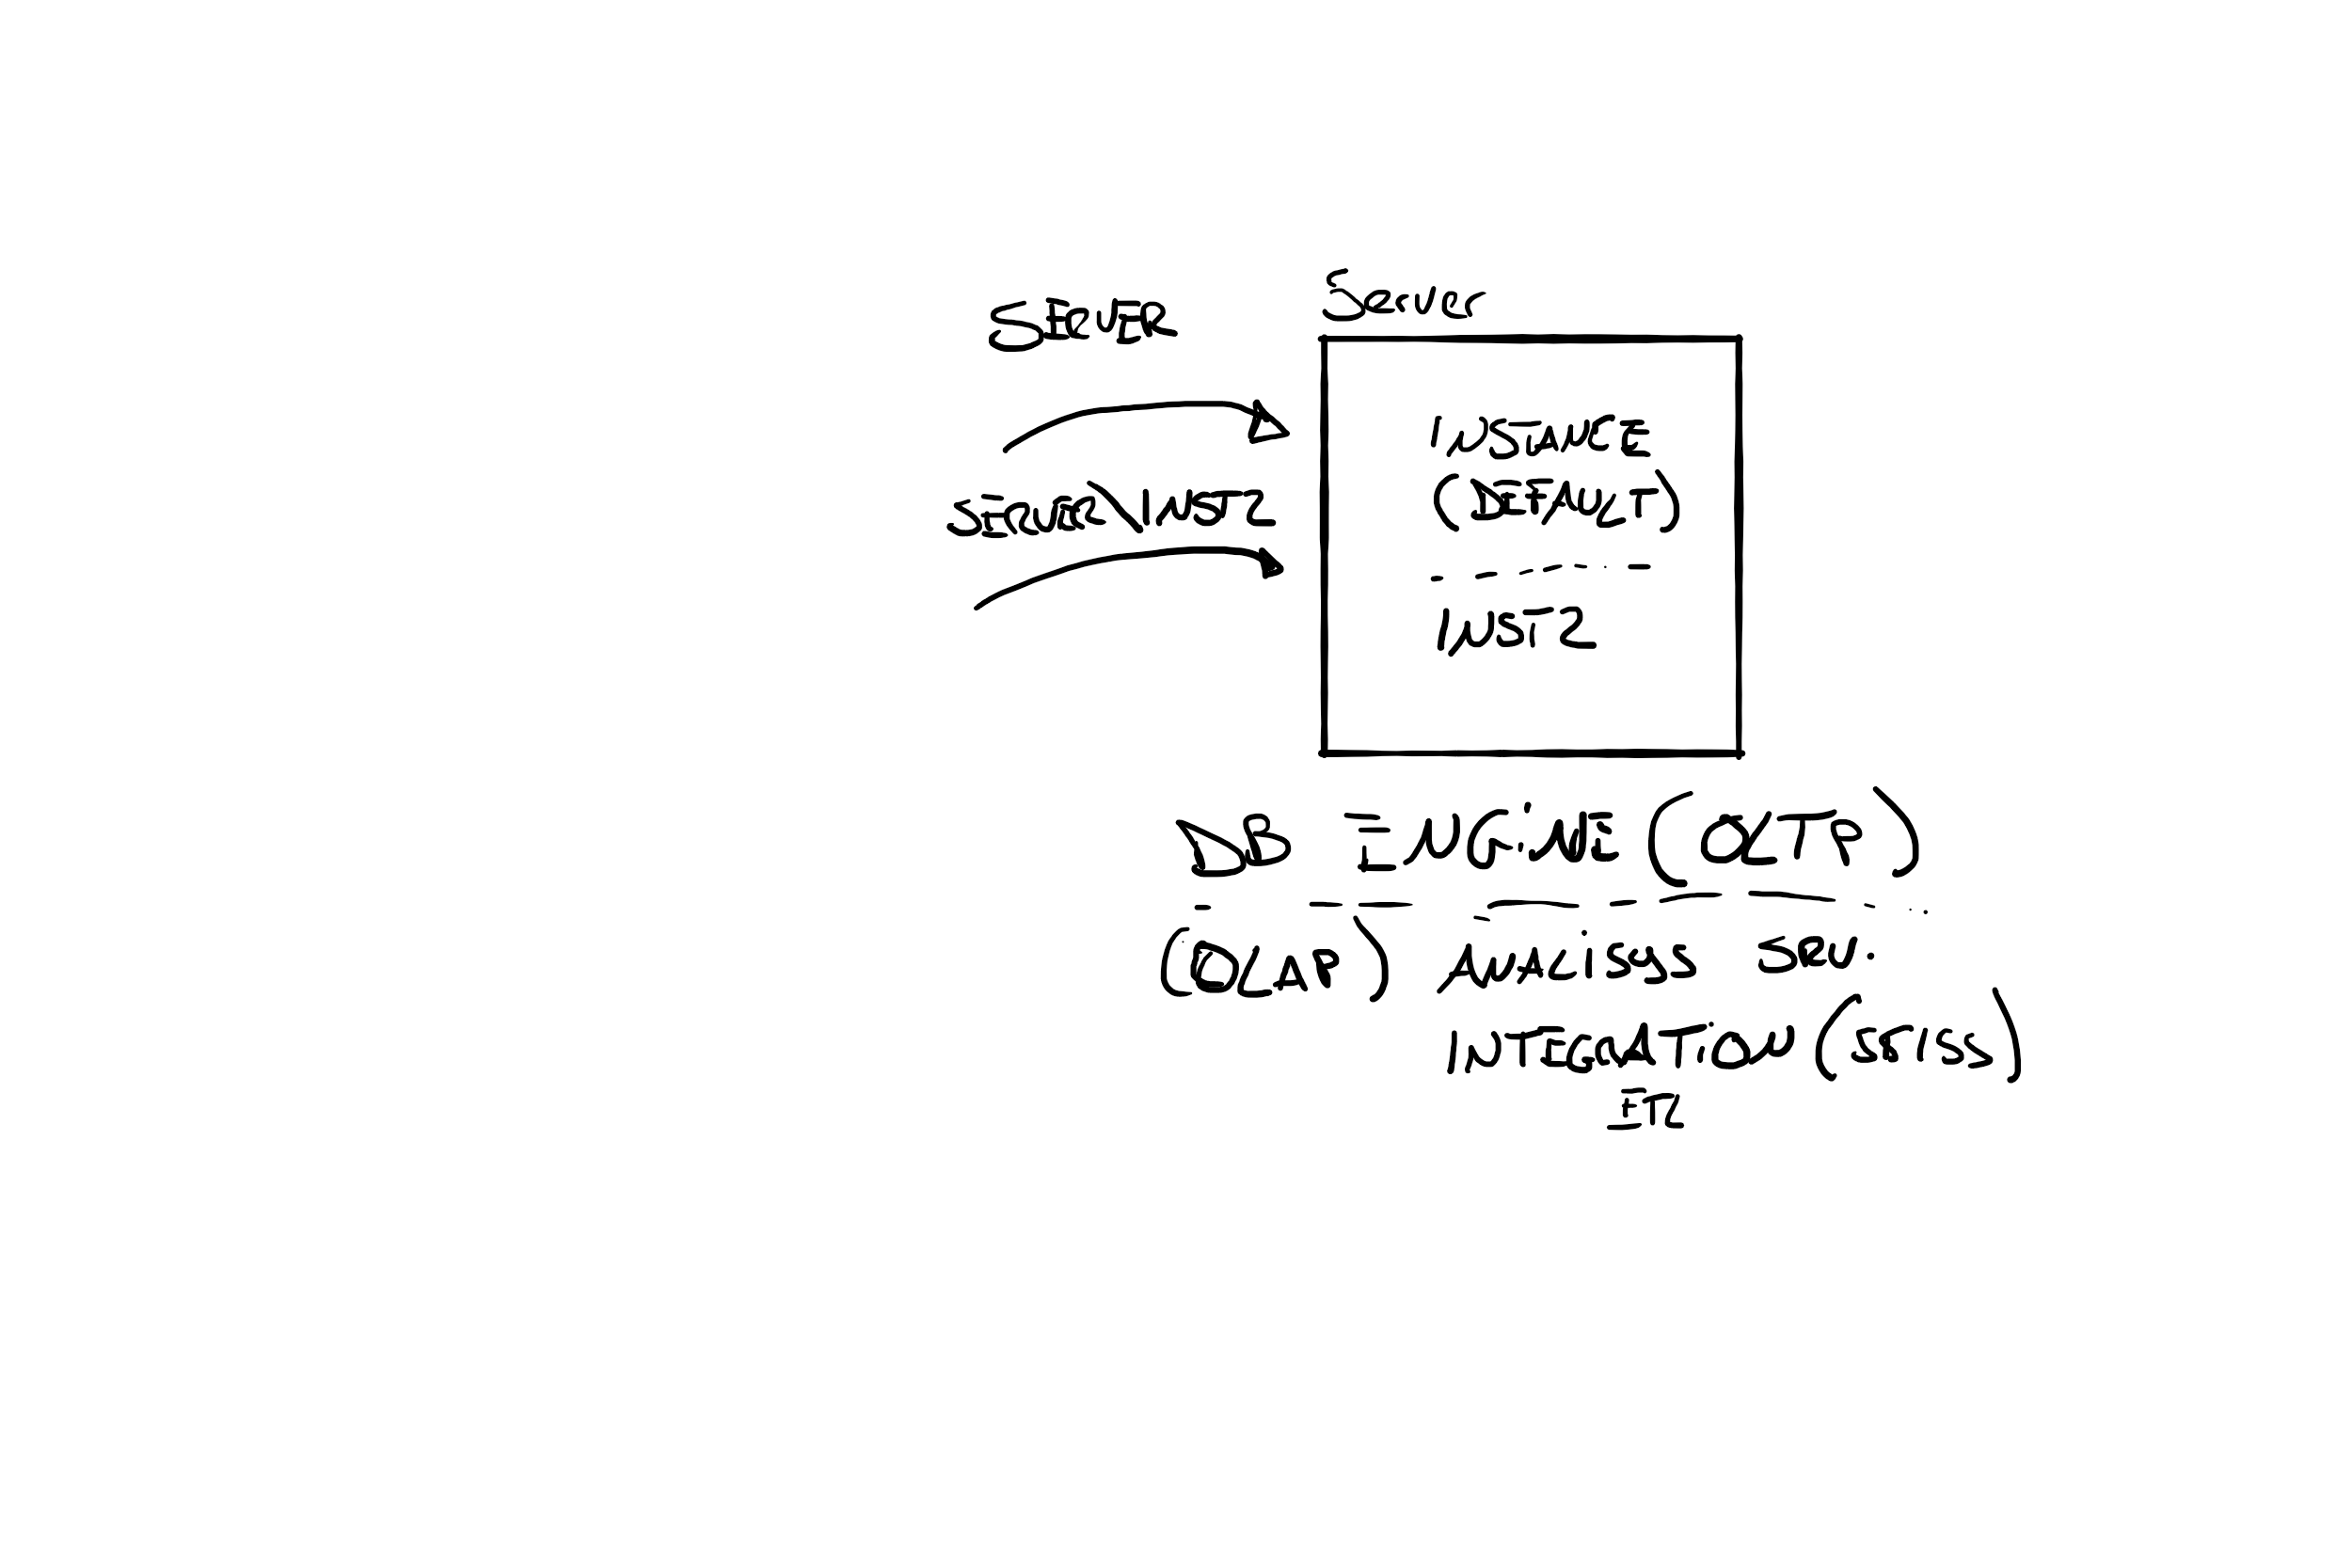 SERVER
Server
INSTANCE
(DEFAULT)
SERVER\INST2
INST2
DB ENGINE (OLTP)
(OLAP) ANALISYS SRV.
INTEGRATION (SSIS)
ETL